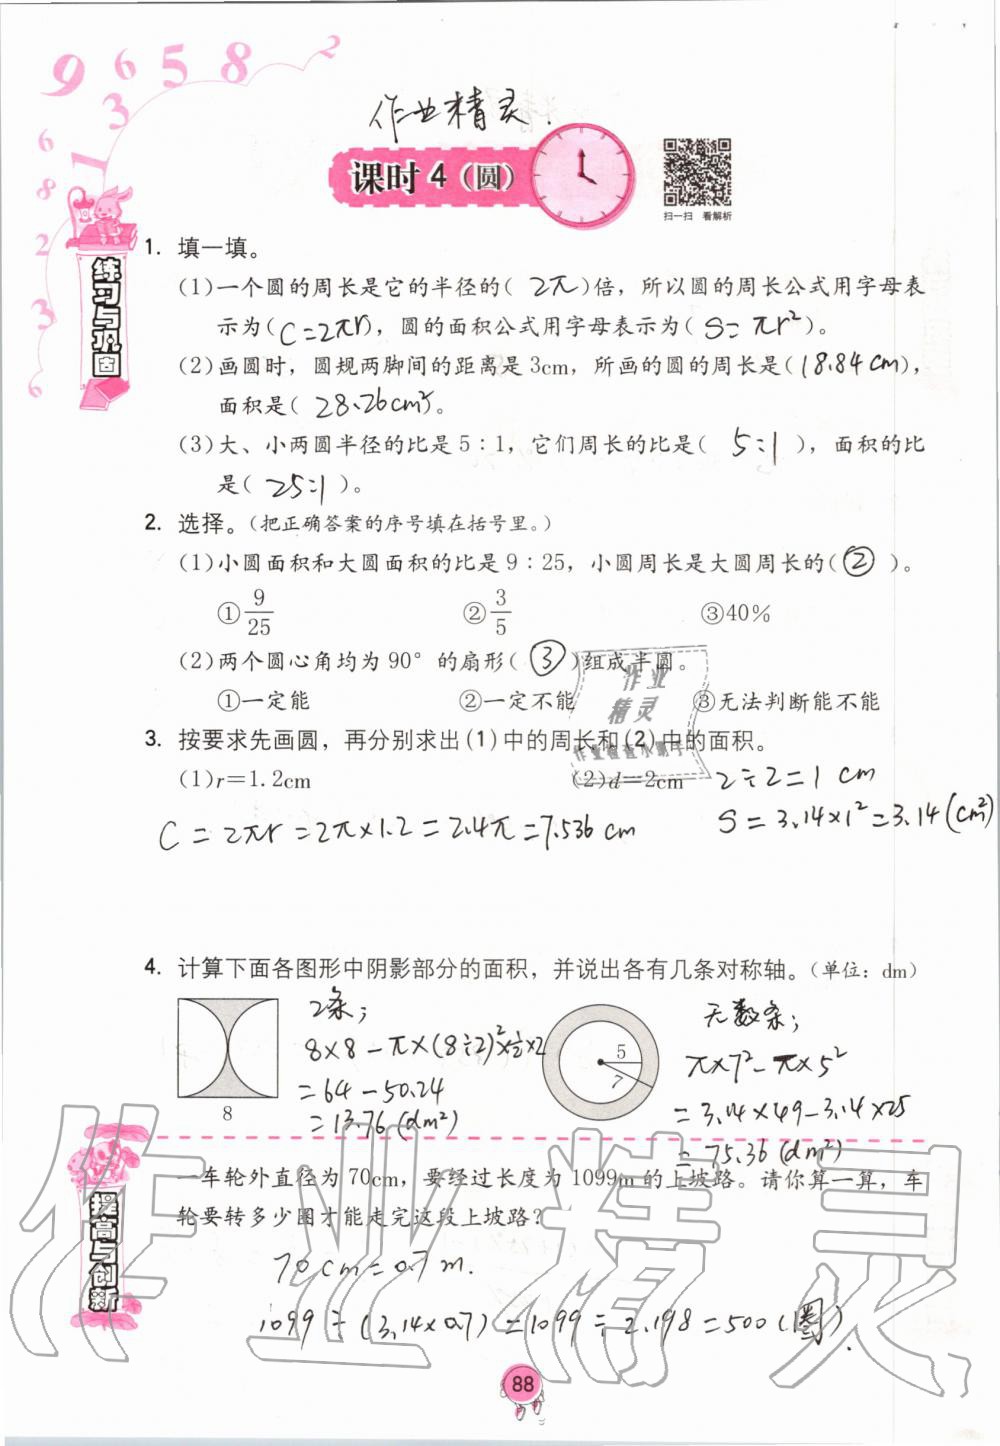 9 6 5 8 2
3
1
6
8
2
3
6
作业精灵.
课时 4（圆）
扫一扫 看解析
练习与巩固
1. 填一填。
(1)一个圆的周长是它的半径的( 2π )倍，所以圆的周长公式用字母表
示为( C=2πr )，圆的面积公式用字母表示为( S=πr² )。
(2)画圆时，圆规两脚间的距离是3cm，所画的圆的周长是( 18.84cm )，
面积是( 28.26cm² )。
(3)大、小两圆半径的比是5∶1，它们周长的比是( 5:1 )，面积的比
是( 25:1 )。
2. 选择。（把正确答案的序号填在括号里。）
(1)小圆面积和大圆面积的比是9∶25，小圆周长是大圆周长的( ② )。
①9/25 ②3/5 ③40%
(2)两个圆心角均为90°的扇形( ③ )组成半圆。
①一定能 ②一定不能 ③无法判断能不能
作业
精灵
3. 按要求先画圆，再分别求出(1)中的周长和(2)中的面积。
(1)r=1.2cm (2)d=2cm 2÷2=1 cm
C=2πr=2π×1.2=2.4π=7.536cm S=3.14×1²=3.14(cm²)
4. 计算下面各图形中阴影部分的面积，并说出各有几条对称轴。（单位：dm）
2条；
8×8-π×(8÷2)²×½×2
=64-50.24
=13.76(dm²)
8
5
7
无数条；
π×7²-π×5²
=3.14×49-3.14×25
=75.36(dm²)
提高与创新
一车轮外直径为70cm，要经过长度为1099m的上坡路。请你算一算，车
轮要转多少圈才能走完这段上坡路？
70cm=0.7m.
1099÷(3.14×0.7)=1099÷2.198=500(圈).
作业精灵
88